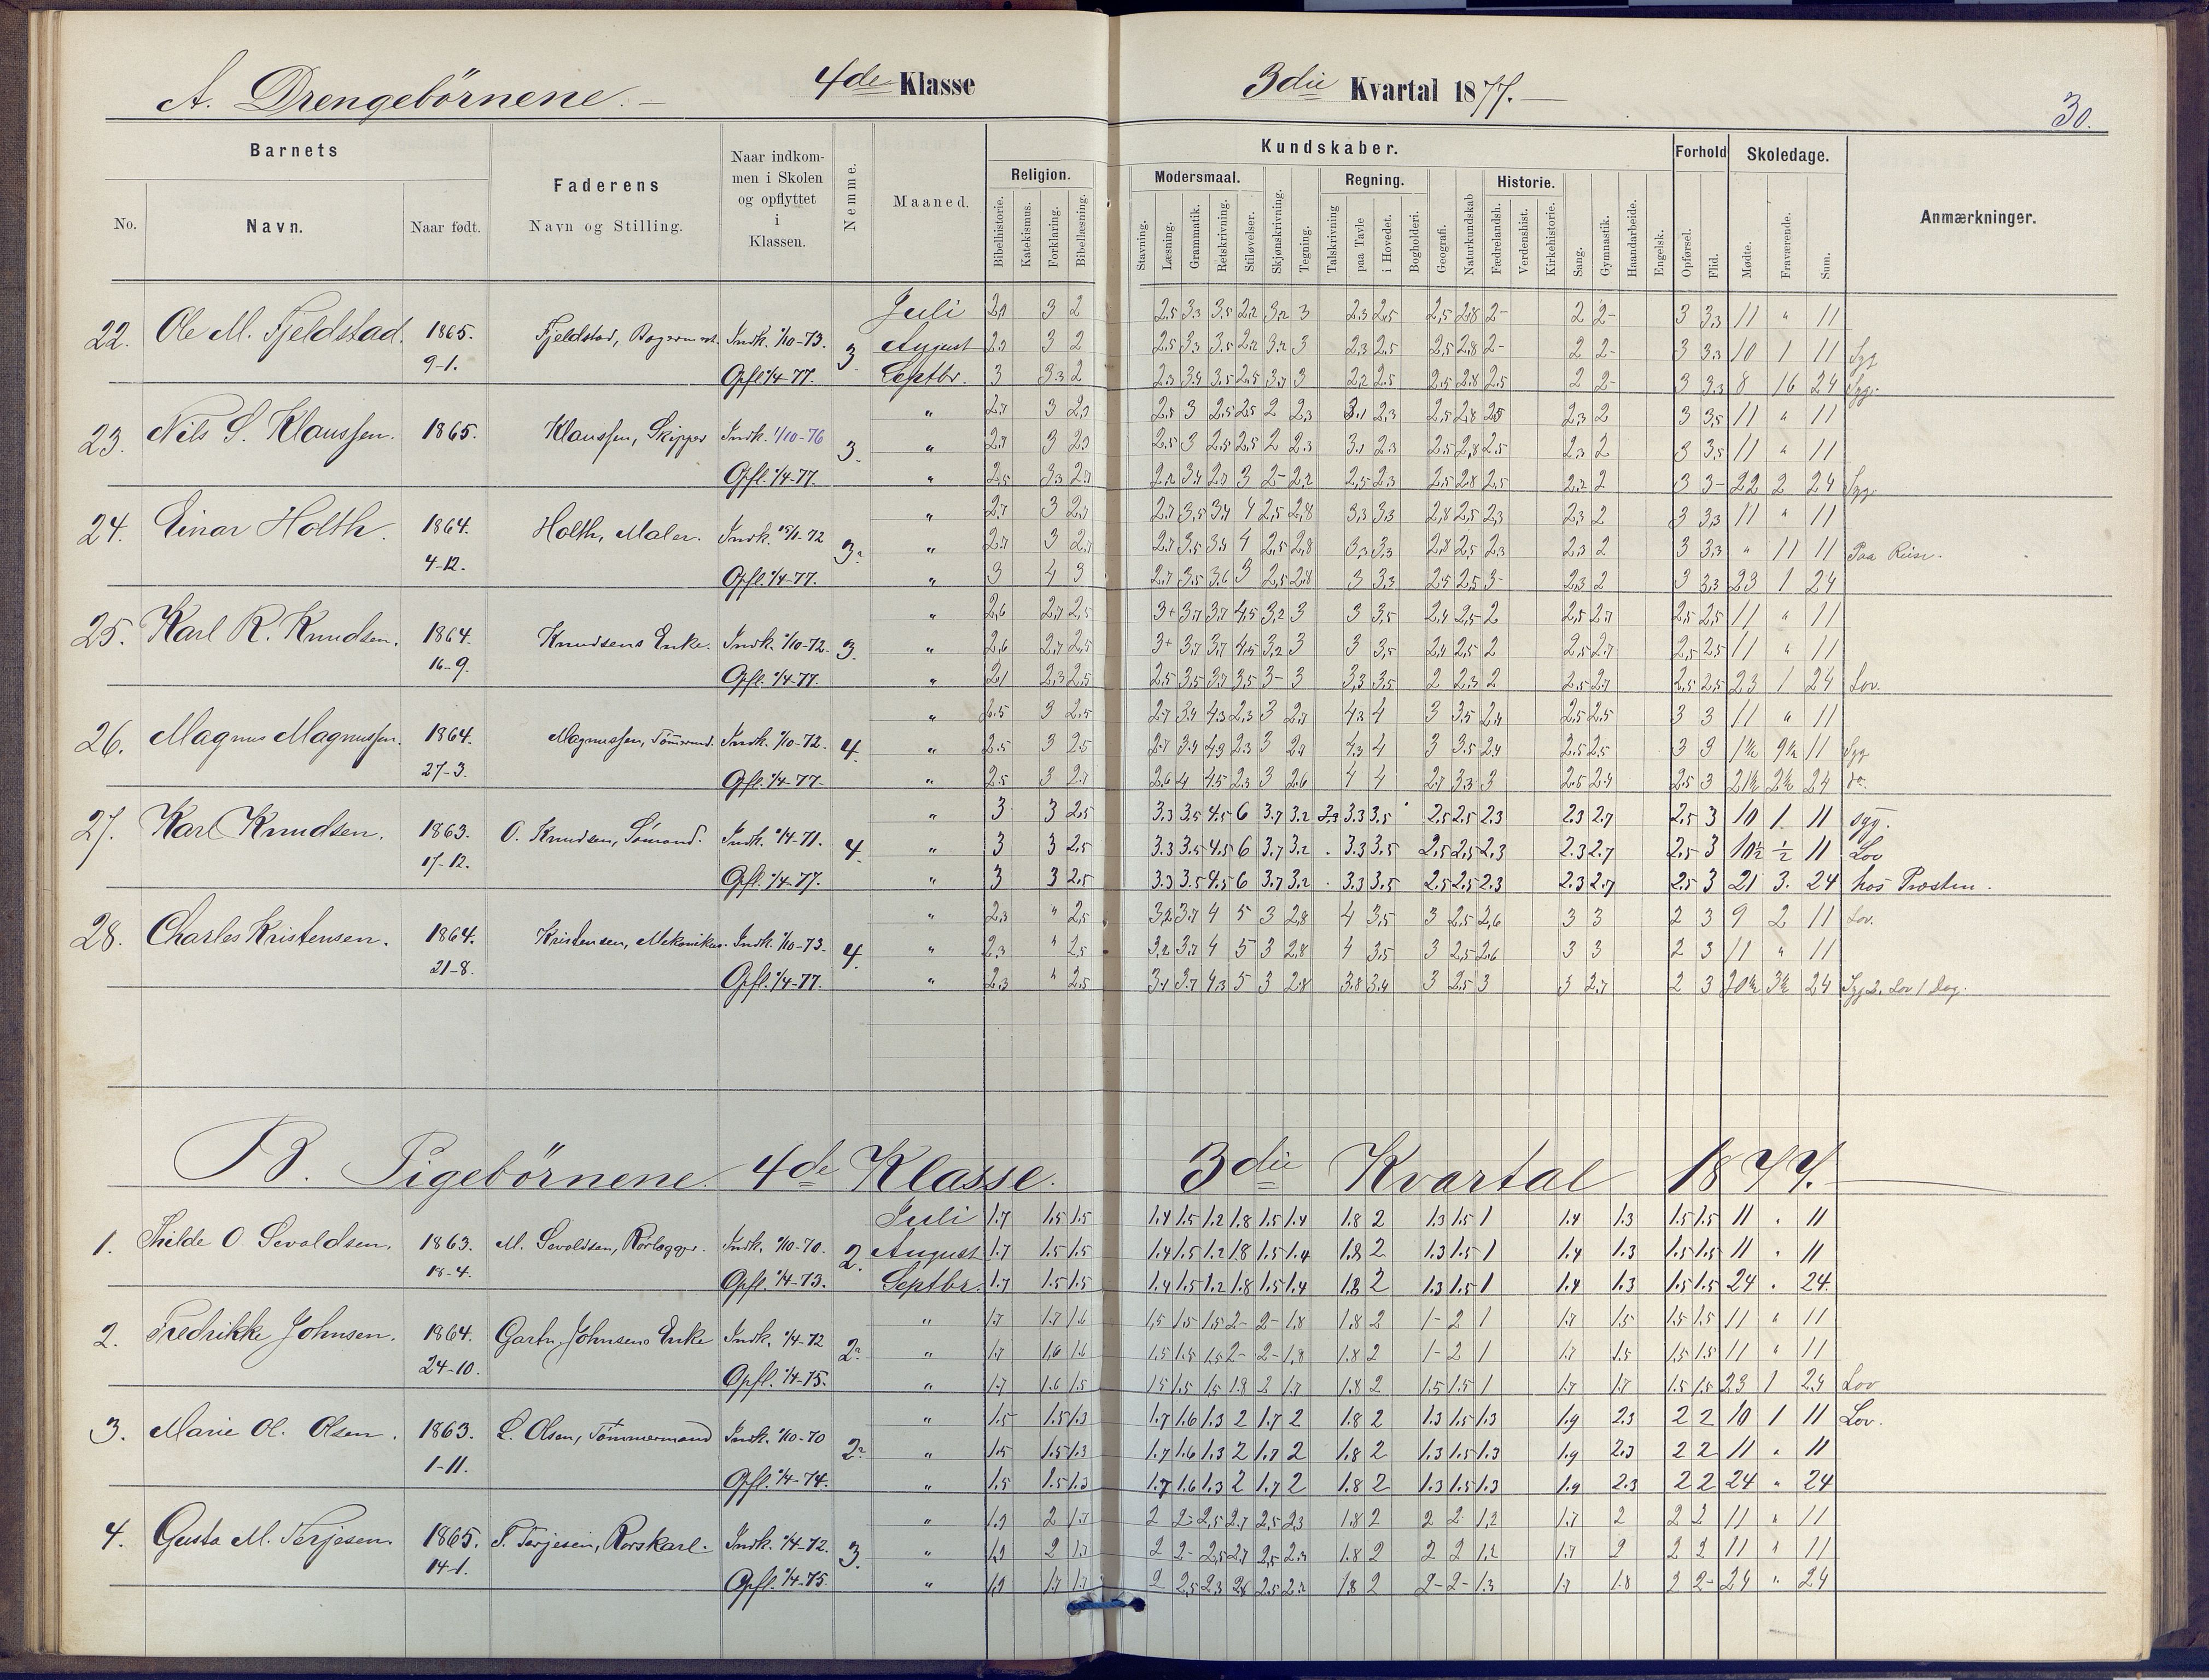 A. Drengebörnene. 4de Klasse 3die Kvartal 1877.
30.
Barnets
No. Navn. Naar født.
Faderens
Navn og Stilling.
Naar indkommen i Skolen og opflyttet i Klassen.
Nemme.
Maaned.
Kundskaber.
Religion. Modersmaal. Regning. Historie.
Bibelhistorie. Katekismus. Forklaring. Bibellæsning. Stavning. Læsning. Grammatik. Retskrivning. Stiløvelser. Skjønskrivning. Tegning. Talskrivning paa Tavle i Hovedet. Bogholderi. Geografi. Naturkundskab Fædrelandsh. Verdenshist. Kirkehistorie. Sang. Gymnastik. Haandarbeide. Engelsk.
Forhold
Opførsel. Flid.
Skoledage.
Mødte. Fraværende. Sum.
Anmærkninger.
22. Ole M. Fjeldstad. 1865. 9-1. Fjeldstad, Indk. 1/10-73. Opfl. 1/4-77. 3
Juli 3 2 2.5 3.3 3.5 2.2 3.2 3 2.3 2.5 2.5 2.8 2- 2 2- 3 3.3 11 " 11
August 3 2 2.5 3.3 3.5 2.2 3.2 3 2.3 2.5 2.5 2.8 2- 2 2- 3 3.3 10 1 11 Syg
Septbr. 3 3.3 2 2.3 3.4 3.5 2.5 3.7 3 2.2 2.5 2.5 2.8 2.5 2 2- 3 3.3 8 16 24 Syg.
23. Nils S. Klaussen. 1865. Klaussen, Skipper Indk. 1/10-76 Opfl. 1/4-77. 3.
" 2.7 3 2.5 3 2.5 2.5 2 2.3 3.1 2.3 2.5 2.8 2.5 2.3 2 3 3.5 11 " 11
" 2.7 3 2.5 3 2.5 2.5 2 2.3 3.1 2.3 2.5 2.8 2.5 2.3 2 3 3.5 11 " 11
" 2.5 3.3 2.7 2.2 3.4 3 2- 2.2 2.5 2.3 2.5 2.8 2.5 2.2 2 3 3- 22 2 24 Syg.
24. Einar Holth. 1864. 4-12. Holth, Maler. Indk. 15/1-72 Opfl. 1/4-77. 3
" 2.7 3 2.7 2.7 3.5 3.4 4 2.5 2.8 3.3 3.3 2.8 2.5 2.3 2.3 2 3 3.3 11 " 11
" 2.7 3 2.7 2.7 3.5 3.4 4 2.5 2.8 3.3 3.3 2.8 2.5 2.3 2.3 2 3 3.3 " 11 11 Paa Reise.
" 3 4 3 2.7 3.5 3.6 3 2.5 2.8 3 3.3 2.5 2.5 3- 2.3 2 3 3.3 23 1 24
25. Karl R. Knudsen. 1864. 16-9. Knudsens Enke. Indk. 1/10-72. Opfl. 1/4-77. 3.
" 2.6 2.7 2.5 3+ 3.7 3.7 4.5 3.2 3 3 3.5 2.4 2.5 2 2.5 2.7 2.5 2.5 11 " 11
" 2.6 2.7 2.5 3+ 3.7 3.7 4.5 3.2 3 3 3.5 2.4 2.5 2 2.5 2.7 2.5 2.5 11 " 11
" 2.1 2.3 2.5 2.5 3.5 3.7 3.5 3- 3 3.3 3.5 2 2.3 2 2.5 2.7 2.5 2.5 23 1 24 Lov.
26. Magnus Magnussen. 1864. 27-3. Magnussen, Tømmermd. Indk. 1/10-72. Opfl. 1/4-77. 4.
" 2.5 3 2.5 2.7 3.4 4.3 2.3 3 2.7 4.3 4 3 3.5 2.4 2.5 2.5 3 3 11 " 11
" 2.5 3 2.5 2.7 3.4 4.3 2.3 3 2.7 4.3 4 3 3.5 2.4 2.5 2.5 3 3 1½ 9½ 11 Syg
" 2.5 3 2.7 2.6 4 4.5 2.3 3 2.6 4 4 2.7 3.3 3 2.5 2.4 2.5 3 21½ 2½ 24 do.
27. Karl Knudsen. 1863. 17-12. O. Knudsen, Sømand. Indk. 1/4-71. Opfl. 1/4-77. 4.
" 3 3 2.5 3.3 3.5 4.5 6 3.7 3.2 3.3 3.5 2.5 2.5 2.3 2.3 2.7 2.5 3 10 1 11 syg.
" 3 3 2.5 3.3 3.5 4.5 6 3.7 3.2 . 3.3 3.5 2.5 2.5 2.3 2.3 2.7 2.5 3 10½ ½ 11 Lov
" 3 3 2.5 3.3 3.5 4.5 6 3.7 3.2 . 3.3 3.5 2.5 2.5 2.3 2.3 2.7 2.5 3 21 3. 24 hos Prosten.
28. Charles Kristensen. 1864. 21-8. Kristensen, Mekanikus. Indk. 1/10-73. Opfl. 1/4-77. 4.
" 2.3 " 2.5 3.2 3.7 4 5 3 2.8 4 3.5 3 2.5 2.6 3 3 2 3 9 2 11 Lov.
" 2.3 " 2.5 3.2 3.7 4 5 3 2.8 4 3.5 3 2.5 2.6 3 3 2 3 11 " 11
" 2.3 " 2.5 3.4 3.7 4.3 5 3 2.8 3.8 3.4 3 2.5 3 3 2.7 2 3 20½ 3½ 24 Syg 2. Lov 1 Dag.
B. Pigebörnene 4de Klasse. 3die Kvartal 1877.
1. Thilde O. Sevaldsen. 1863. 18-4. M. Sevaldsen, Rørlægger. Indk. 1/10-70. Opfl. 1/4-73. 2.
Juli 1.7 1.5 1.5 1.4 1.5 1.2 1.8 1.5 1.4 1.8 2 1.3 1.5 1 1.4 1.3 1.5 1.5 11 . 11
August 1.7 1.5 1.5 1.4 1.5 1.2 1.8 1.5 1.4 1.8 2 1.3 1.5 1 1.4 1.3 1.5 1.5 11 . 11
Septbr. 1.7 1.5 1.5 1.4 1.5 1.2 1.8 1.5 1.4 1.8 2 1.3 1.5 1 1.4 1.3 1.5 1.5 24 . 24.
2. Fredrikke Johnsen. 1864. 24-10. Gartn. Johnsens Enke Indk. 1/4-72 Opfl. 1/4-75. 2
" 1.7 1.7 1.6 1.5 1.5 1.5 2- 2- 1.8 1.8 2 1- 2 1 1.7 1.5 1.5 1.5 11 " 11
" 1.7 1.6 1.6 1.5 1.5 1.5 2- 2- 1.8 1.8 2 1- 2 1 1.7 1.5 1.5 1.5 11 " 11
" 1.7 1.6 1.5 1.5 1.5 1.5 1.8 2 1.7 1.8 2 1.5 1.5 1 1.7 1.7 1.5 1.5 23 1 24 Lov
3. Marie Ol. Olsen. 1863. 1-11. L. Olsen, Tømmermand Indk. 1/10-70 Opfl. 1/4-74. 2
" 1.5 1.5 1.3 1.7 1.6 1.3 2 1.7 2 1.8 2 1.3 1.5 1.3 1.9 2.3 2 2 10 1 11 Lov.
" 1.5 1.5 1.3 1.7 1.6 1.3 2 1.7 2 1.8 2 1.3 1.5 1.3 1.9 2.3 2 2 11 " 11
" 1.5 1.5 1.3 1.7 1.6 1.3 2 1.7 2 1.8 2 1.3 1.5 1.3 1.9 2.3 2 2 24 " 24
4. Gusta M. Terjesen. 1865. 14-1. T. Terjesen, Rorskarl. Indk. 1/4-72. Opfl. 1/4-75. 3.
" 1.9 2 1.7 2 2- 2.5 2.7 2.5 2.3 1.8 2 2 2- 1.2 1.7 2 2 2 11 " 11
" 1.9 2 1.7 2 2- 2.5 2.7 2.5 2.3 1.8 2 2 2 1.2 1.7 2 2 2 11 " 11
" 1.9 1.7 1.7 2 2.5 2.3 2.5 2.2 1.8 2 2- 2- 1.3 1.7 1.8 2 2- 24 " 24